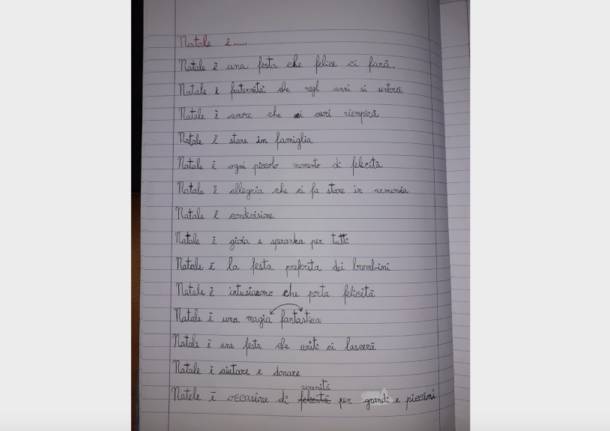 Natale è.....
Natale è una festa che felice ci farà.
Natale è fraternità che negl anni si unterà
Natale è amore che ci cuori riempirà
Natale è stare in famiglia
Natale è ogni piccolo momento di felicità
Natale è allegria che ci fa stare in armonia
Natale è condivisione
Natale è gioia e speranza per tutti
Natale è la festa preferita dei bambini
Natale è entusiasmo che porta felicità
Natale è una magia fantastica
Natale è una festa che uniti ci lascerà
Natale è aiutare e donare
serenità
Natale è occasione di felicità per grandi e piccini